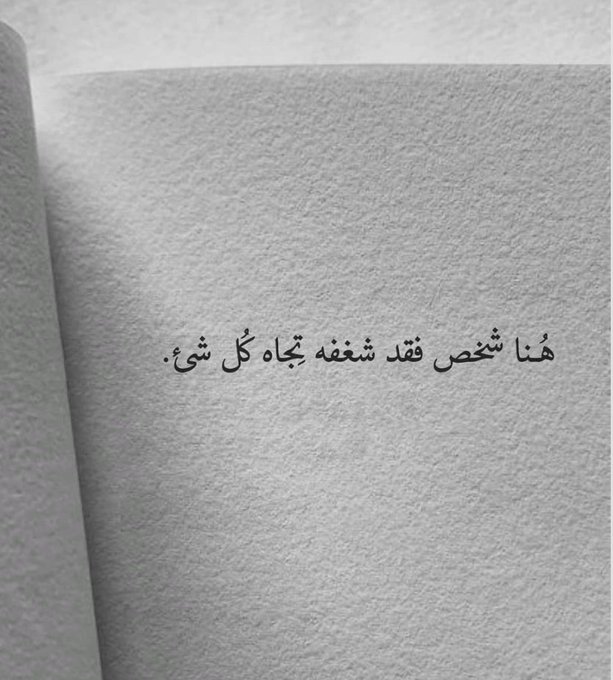 هُنا شخص فقد شغفه تِجاه كُل شئ.